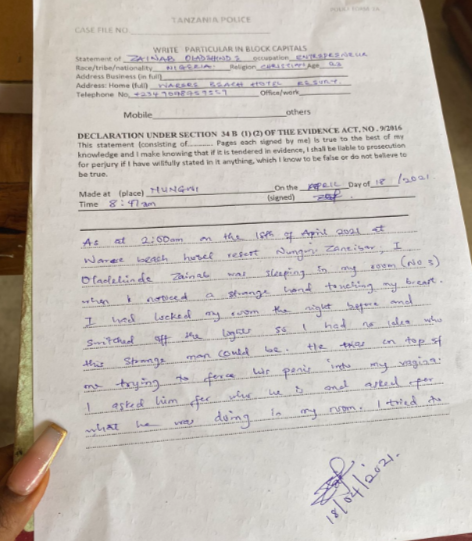 TANZANIA POLICE
CASE FILE NO
WRITE PARTICULAR IN BLOCK CAPITALS
Statement of ZAINAB occupation ENTREPRENEUR
Race/tribe/nationality NIGERIAN Religion CHRISTIAN Age 23
Address Business (in full)
Address: Home (full) BEACH HOTEL RESORT
Telephone No. Office/work
Mobile others
DECLARATION UNDER SECTION 34 B (1) (2) OF THE EVIDENCE ACT, NO. 9/2016
This statement (consisting of......... Pages each signed by me) is true to the best of my
knowledge and I make knowing that if it is tendered in evidence, I shall be liable to prosecution
for perjury if I have willfully stated in it anything, which I know to be false or do not believe to
be true.
Made at (place) NUNGWI On the APRIL Day of 18 /2021
Time 8:41am (signed)
As at 2:00am on the of April 2021 at
beach hotel resort Nungwi Zanzibar, I
Oladehinde Zainab was sleeping in my room (No 3)
when I noticed a strange hand touching my breast.
I had locked my room the night before and
switched off the lights so I had no idea who
this strange man could be. He was on top of
me trying to force his penis into my vagina.
I asked him for who he is and asked for
what he was doing in my room. I tried to
18/04/2021.